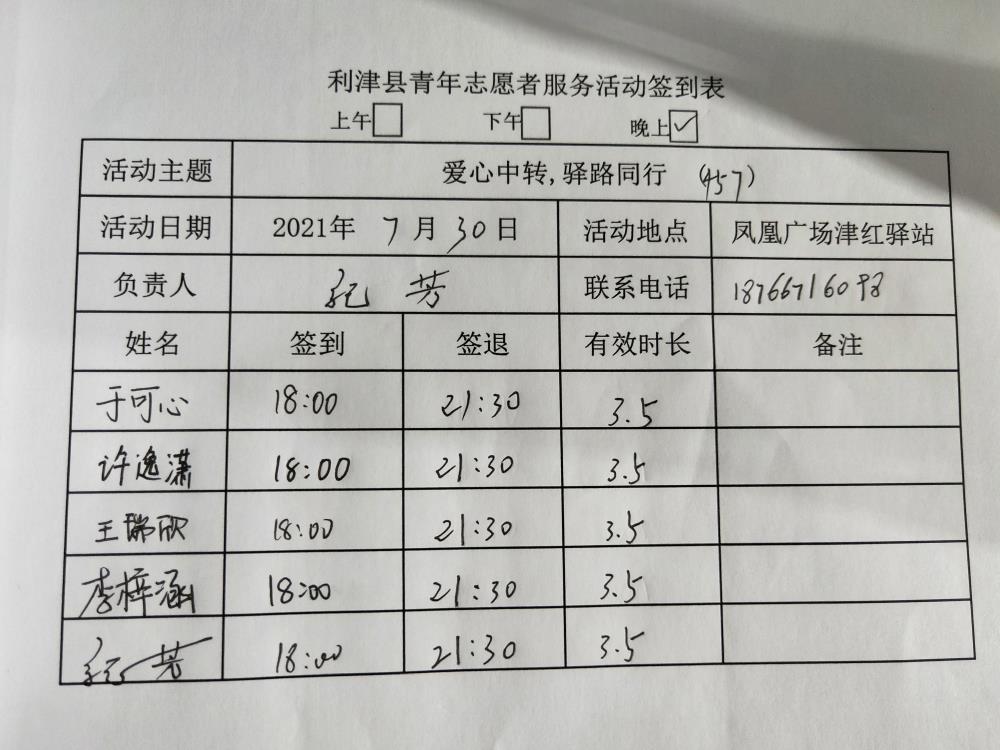 利津县青年志愿者服务活动签到表
上午□ 下午□ 晚上☑
活动主题 爱心中转,驿路同行 (457)
活动日期 2021年 7月30日 活动地点 凤凰广场津红驿站
负责人 纪芳 联系电话 18766716098
姓名 签到 签退 有效时长 备注
于可心 18:00 21:30 3.5
许逸潇 18:00 21:30 3.5
王瑞欣 18:00 21:30 3.5
李梓涵 18:00 21:30 3.5
纪芳 18:00 21:30 3.5